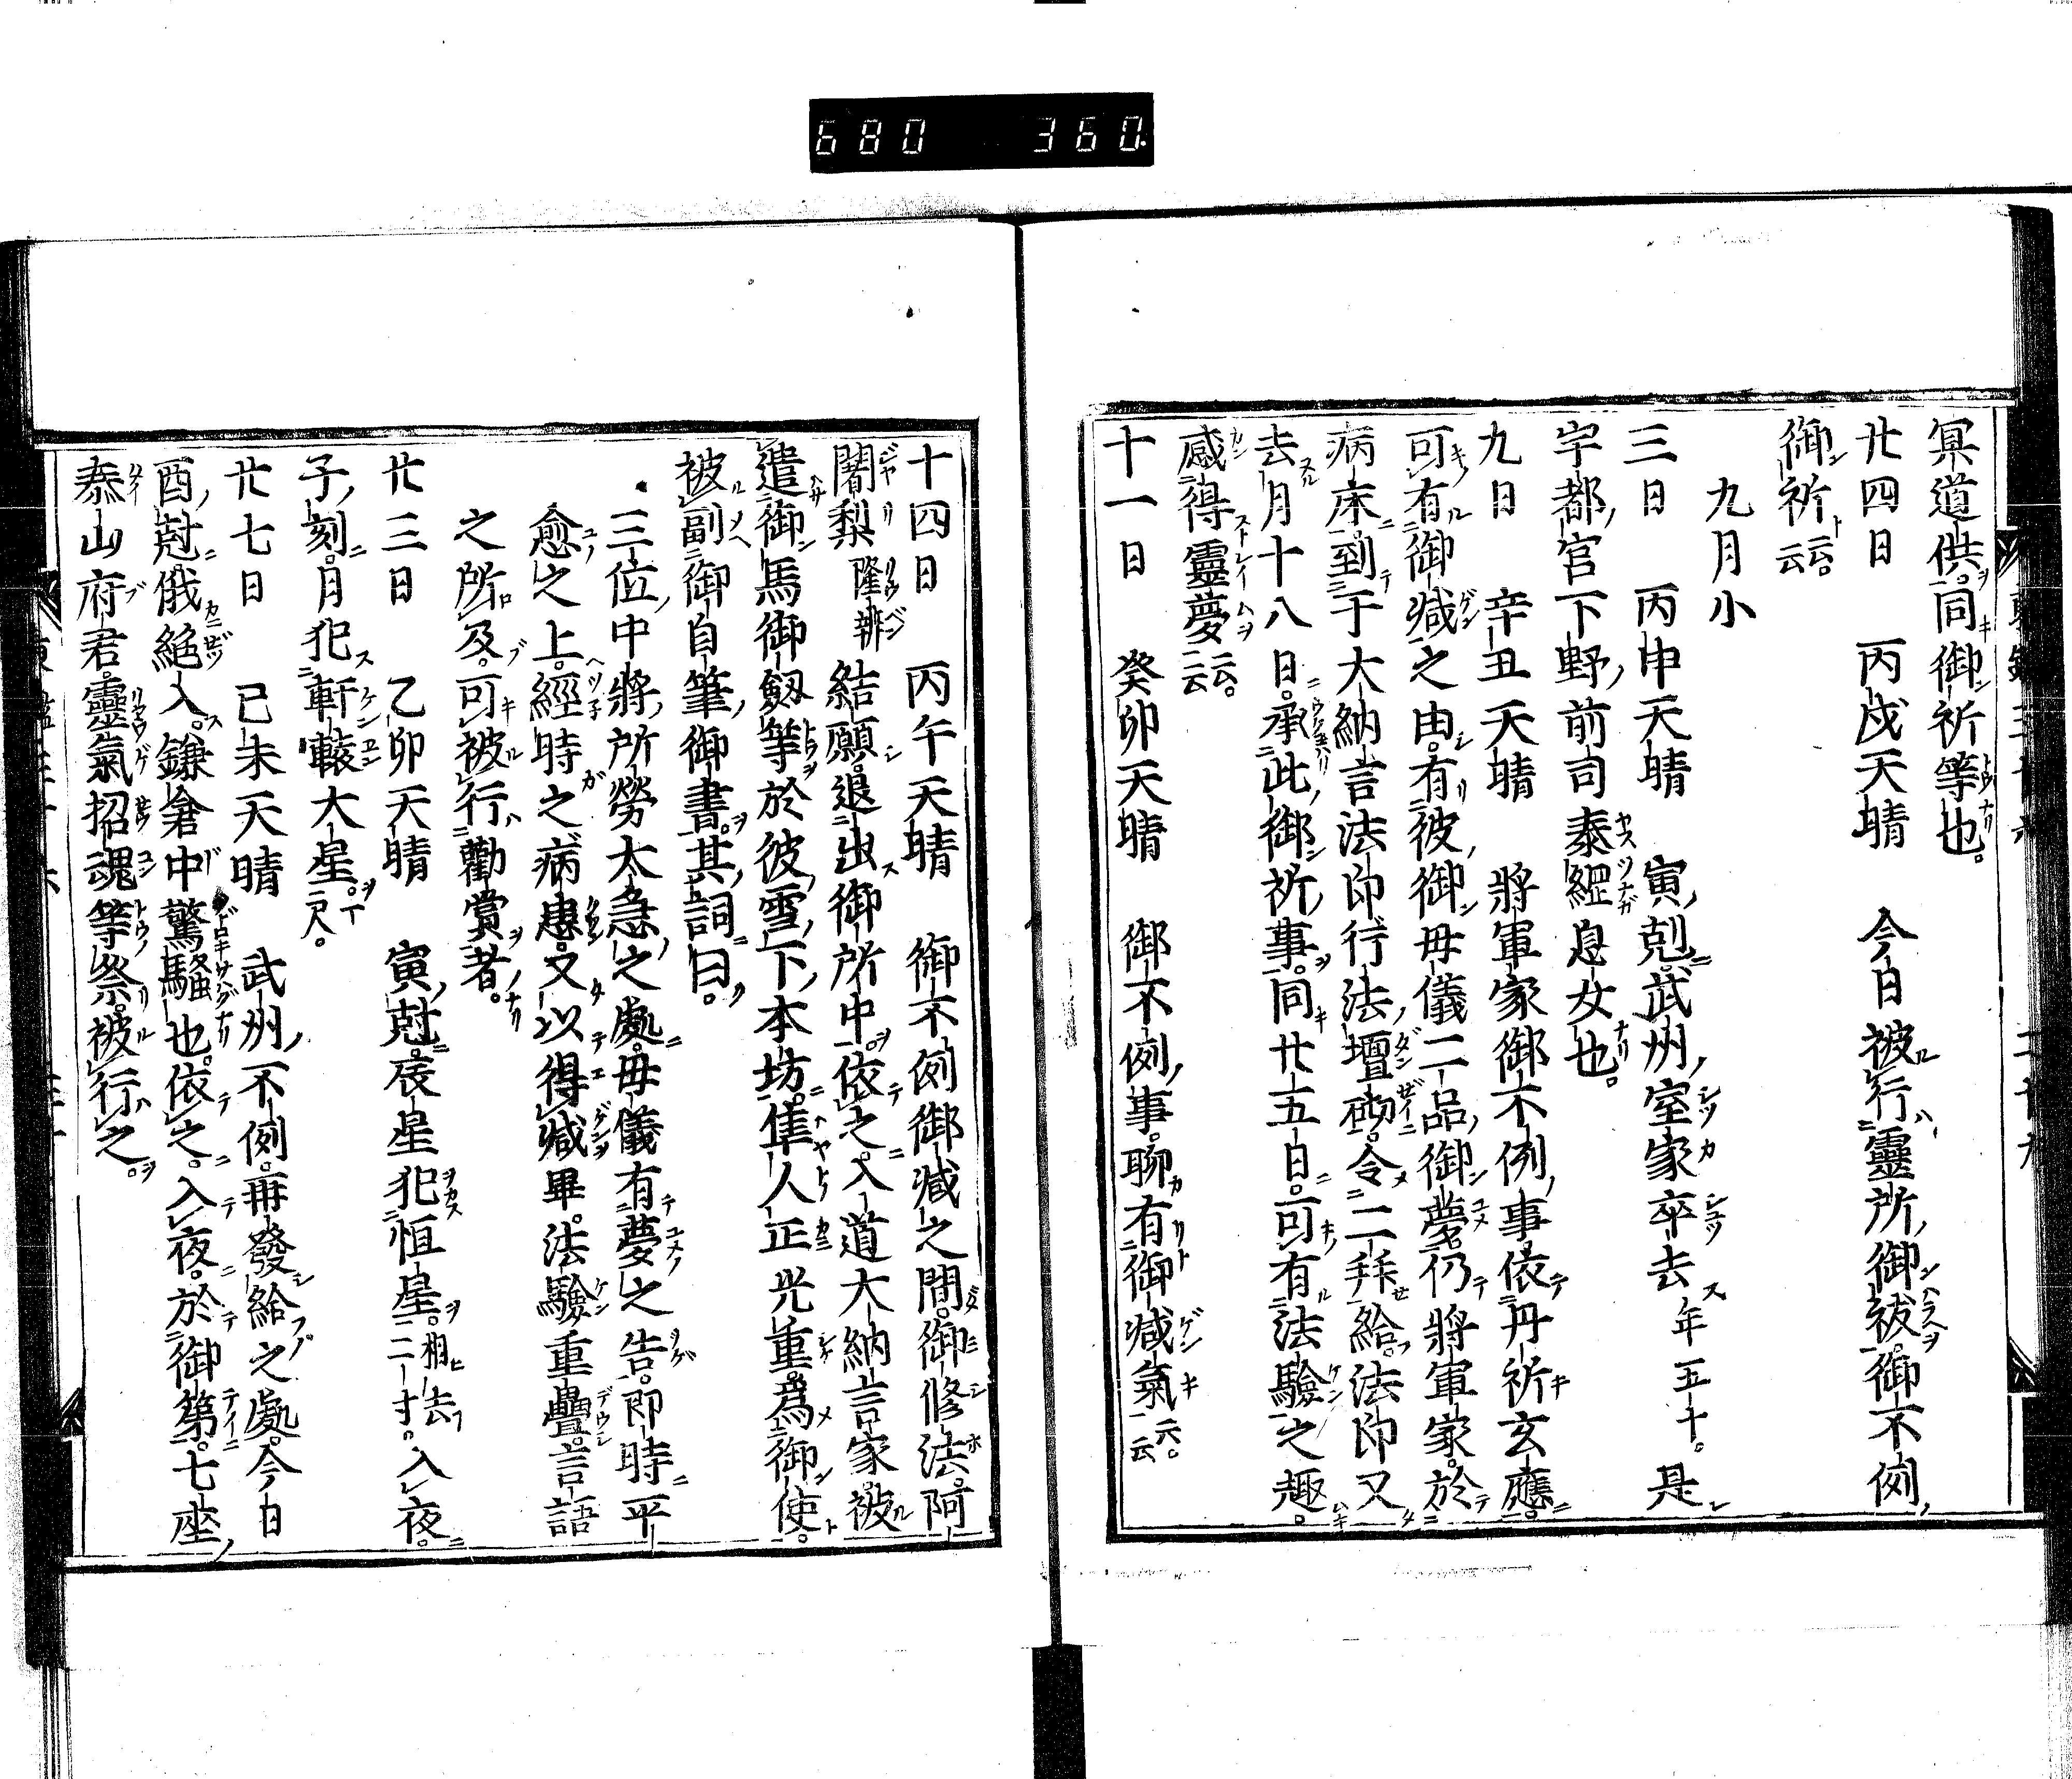 680 360
冥道供。同御祈等也。
廿四日 丙戌天晴 今日被行靈所御祓。御不例
御祈云云。
九月小
三日 丙申天晴 寅剋。武州室家卒去年五十。是
宇都宮下野前司泰綱息女也。
九日 辛丑天晴 將軍家御不例事。依丹祈玄應。
可有御減之由。有彼御母儀二品御夢。仍將軍家。於
病床。到于大納言法印行法壇砌。令二拜給。法印又
去月十八日。承此御祈事。同廿五日。可有法驗之趣。
感得靈夢云云。
十一日 癸卯天晴 御不例事。聊有御減氣云云。
十四日 丙午天晴 御不例御減之間。御修法。阿
闍梨隆辨結願退出御所中。依之。入道大納言家。被
遣御馬御劔等於彼雪下本坊。隼人正光重。爲御使。
被副御自筆御書。其詞曰。
三位中將所勞太急之處。母儀有夢之告。即時平
愈之上。經時之病患。又以得減畢。法驗重疊。言語
之所及。可被行勸賞者。
廿三日 乙卯天晴 寅尅。辰星犯恒星。二寸。相去入夜。
子刻。月犯軒轅大星。二尺。
廿七日 己未天晴 武州不例。再發給之處。今日
酉尅。俄絶入。鎌倉中驚騷也。依之。入夜。於御第。七座
泰山府君。靈氣招魂等祭。被行之。